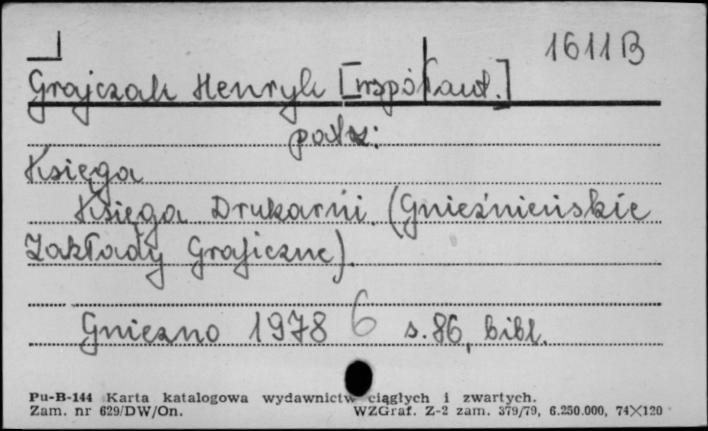 1611B
Grajczak Henryk [współaut.]
patrz:
Księga
Księga Drukarni (Gnieźnieńskie
Zakłady Graficzne).
Gniezno 1978 6 s. 86, bibl.
Pu-B-144 Karta katalogowa wydawnictw ciągłych i zwartych.
Zam. nr 629/DW/On. WZGraf. Z-2 zam. 379/79, 6.250.000, 74×120